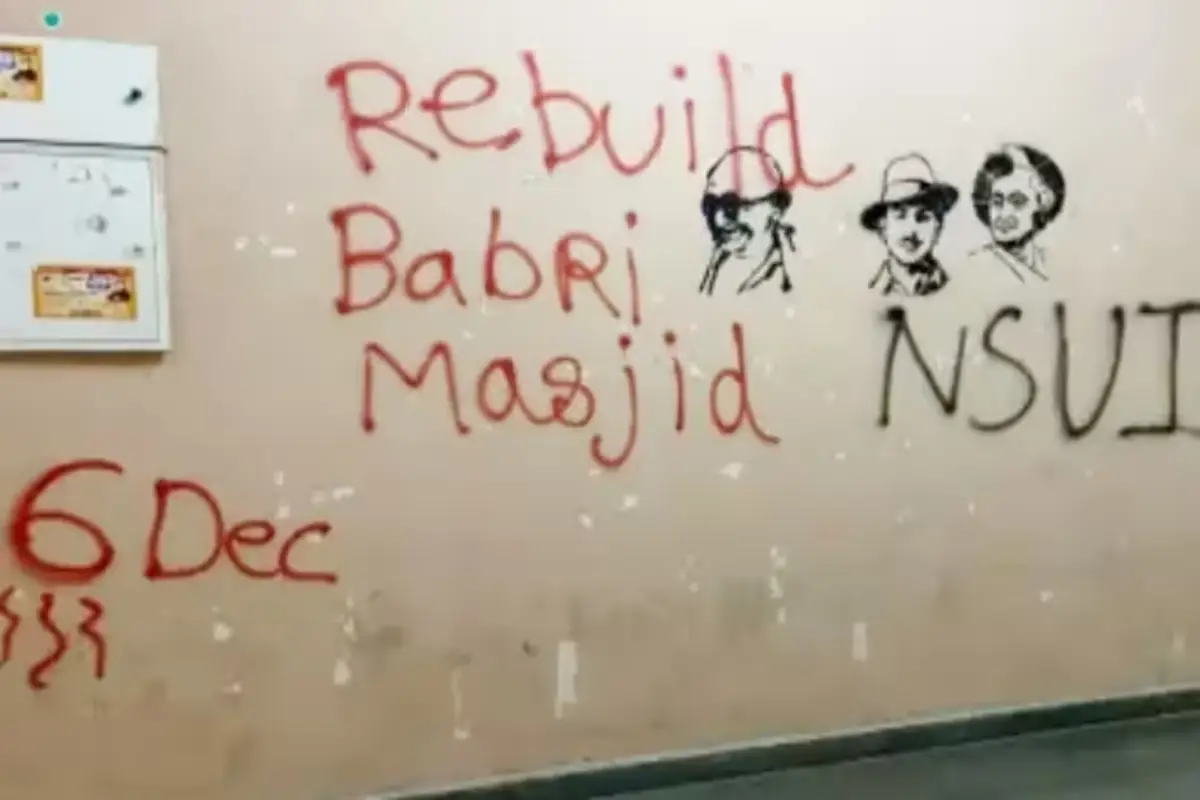 Rebuild
BabRi
Masjid
NSUI
6 Dec